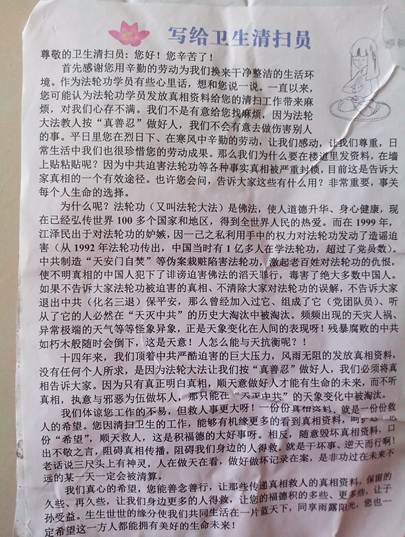 写给卫生清扫员
尊敬的卫生清扫员：您好！您辛苦了！
首先感谢您用辛勤的劳动为我们换来干净整洁的生活环
境。作为法轮功学员有些心里话，想和您说一说。一直以来，
您可能认为法轮功学员发放真相资料给您的清扫工作带来麻
烦，对我们心存不满。我们不是有意给您找麻烦。因为法轮
大法教人按“真善忍”做好人，我们不会有意去做伤害别人
的事。平日里您在烈日下、在寒风中辛勤的劳动，让我们感动，让我们尊重，日
常生活中我们也很珍惜您的劳动成果。那么我们为什么要在楼道里发资料，在墙
上贴粘贴呢？因为中共迫害法轮功等各种事实真相被严重封锁，目前这是告诉大
家真相的一个有效途径。也许您会问，告诉大家这些有什么用？非常重要，事关
每个人生命的选择。
为什么呢？法轮功（又叫法轮大法）是佛法，使人道德升华、身心健康，现
在已经弘传世界 100 多个国家和地区，得到全世界人民的热爱。而在 1999 年，
江泽民出于对法轮功的嫉妒，因一己之私利用手中的权力对法轮功发动了造谣迫
害（从 1992 年法轮功传出，中国当时有 1 亿多人在学法轮功，超过了党员数）。
中共制造“天安门自焚”等伪案栽赃陷害法轮功，激起老百姓对法轮功的仇恨，
使不明真相的中国人犯下了诽谤迫害佛法的滔天罪行，毒害了绝大多数中国人。
如果不告诉大家法轮功被迫害的真相、不清除大家对法轮功的误解，不告诉大家
退出中共（化名三退）保平安，那么曾经加入过它、组成了它（党团队员）、
听从了它的人必然在“天灭中共”的历史大淘汰中被淘汰。频频出现的天灾人祸、
异常极端的天气等等怪象异象，正是天象变化在人间的表现呀！残暴腐败的中共
如朽木般随时会倒下，这是天意！人怎么能与天抗衡呢？！
十四年来，我们顶着中共严酷迫害的巨大压力，风雨无阻的发放真相资料，
没有任何个人所求，是因为法轮大法让我们按“真善忍”做好人，我们必须将真
相告诉大家。因为只有真正明白真相，顺天意做好人才能有生命的未来，而不听
真相，执意与邪恶为伍做坏人，那只能在“天灭中共”的天象变化中被淘汰。
我们体谅您工作的不易，但救人事更大呀！一份份真相资料，就是一份份救
人的希望。您因清扫卫生的工作，能够有机缘更多的看到真相资料，
份“希望”，顺天救人，这是积福德的大好事呀。相反，随意毁坏真相资料，口
出不敬之言，阻碍真相传播，阻碍我们身边的人得救，就是干坏事、逆天而行啊！
老话说三尺头上有神灵，人在做天在看，做好做坏记录在案，是非功过在未来不
远的某一天一定会被清算。
我们真心的希望，您能善念善行，让那些传递真相救人的真相资料，保留的
久些、再久些，让我们身边更多的人得救，让您的福德积的多些、更多些，让子
孙受益。生生世世的缘分使我们共同生活在一片蓝天下，同享雨露阳光，您也一
定希望这一方人都能拥有美好的生命未来！